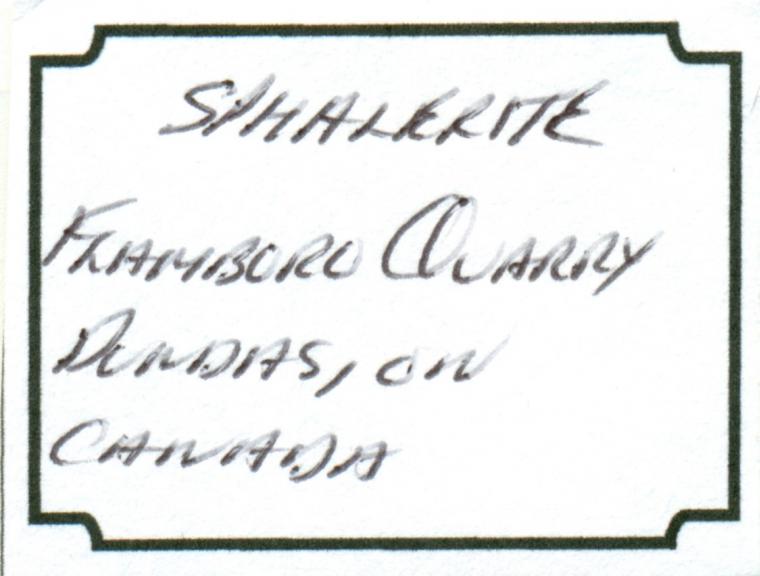 SPHALERITE
FLAMBORO QUARRY
DUNDAS, ON
CANADA